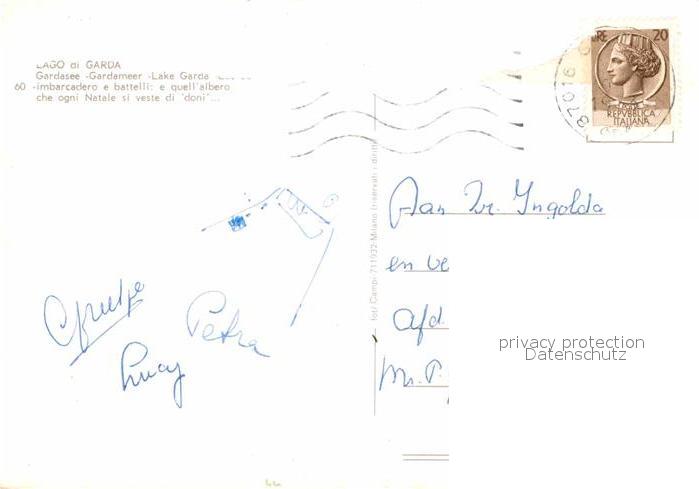 LAGO di GARDA
Gardasee -Gardameer -Lake Garda
60 -imbarcadero e battelli: e quell'albero
che ogni Natale si veste di "doni"...
LIRE 20
REPVBBLICA
ITALIANA
37016
Foto Campi 711932-Milano (riservati i diritti
Aan Zr. Ingolda
en ve
Afd
Mr. P.
privacy protection
Datenschutz
Petra
Lucy